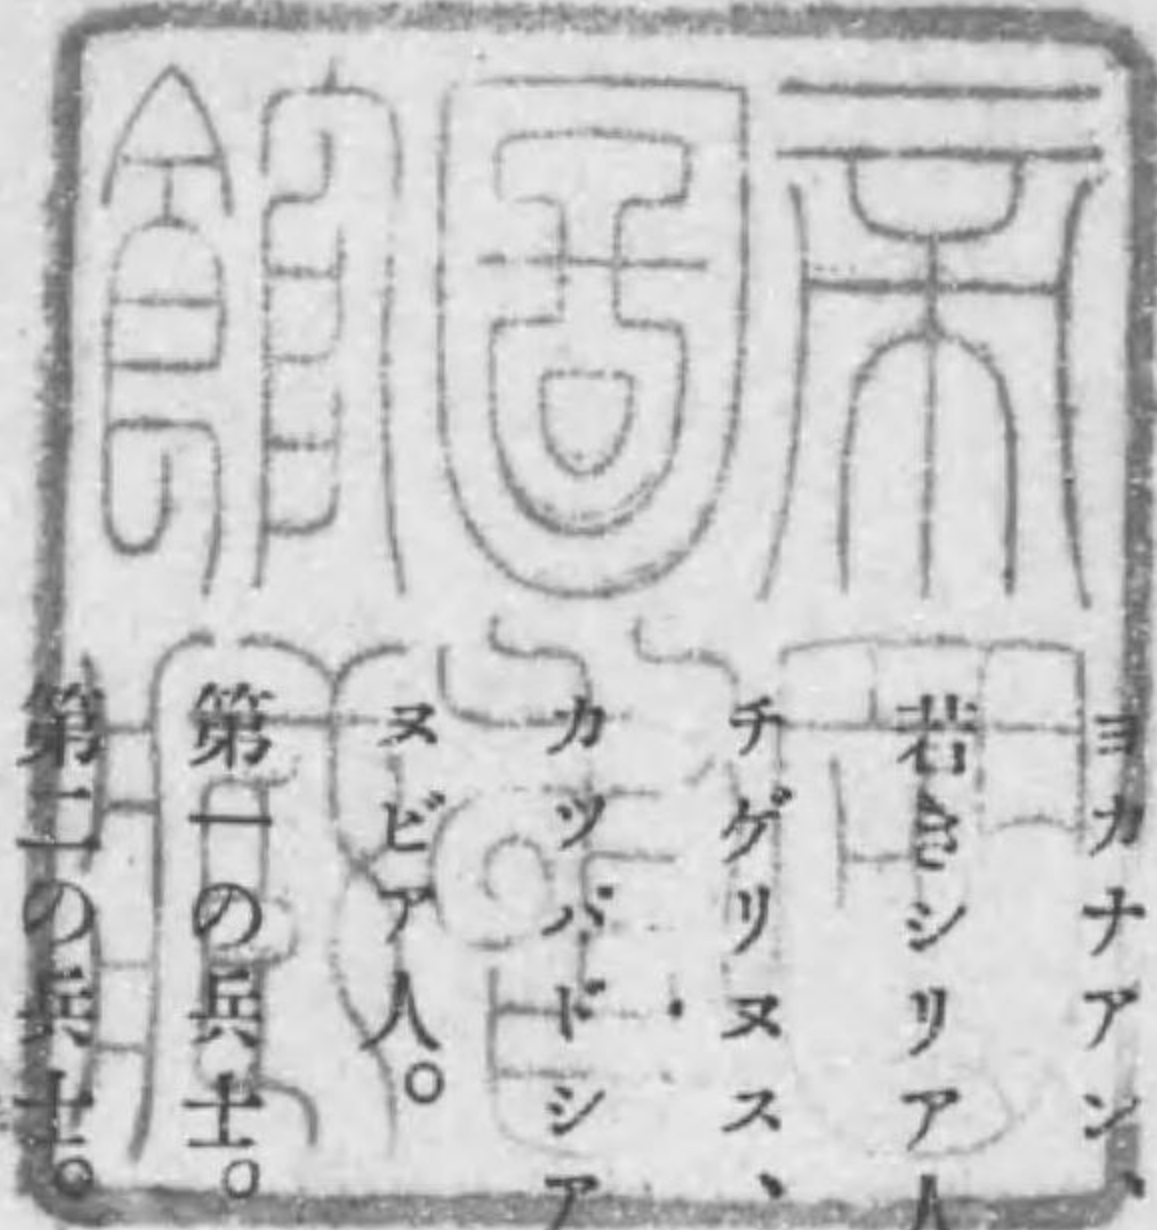 帝國圖書館藏
ヨカナアン、
若きシリア人
チゲリヌス、
カツパドシア
ヌビア人。
第一の兵士。
第二の兵士。